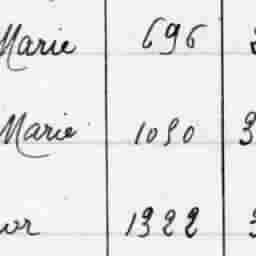 Marie 696
Marie 1050 3
1322